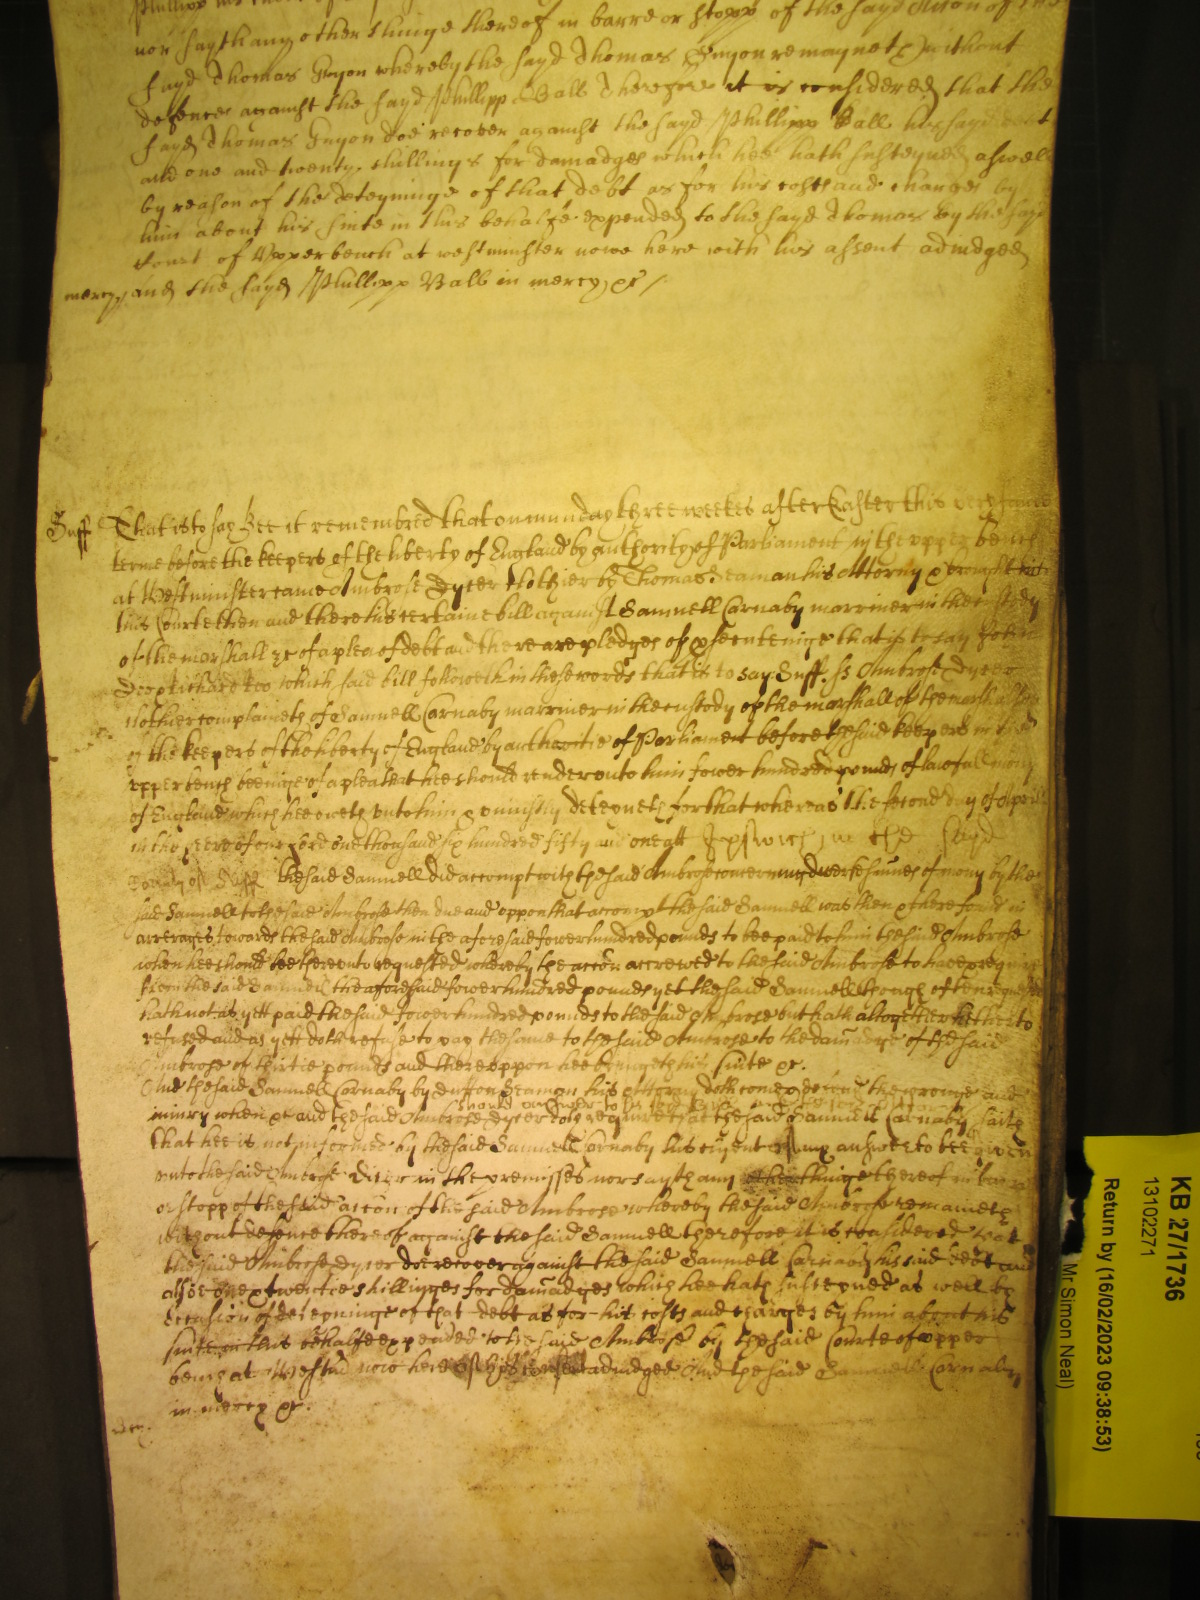 Phillipp
nor sayth any other thinge thereof in barre or stopp of the sayd Accon of the
sayd Thomas Guyon whereby the sayd Thomas Guyon remayneth without
defence against the sayd Phillipp Ball Therefore it is considered that the
sayd Thomas Guyon doe recover against the sayd Phillipp Ball his sayd debt
and one and twenty shillings for damadges which hee hath susteyned aswell
by reason of the deteyninge of that debt as for his costs and charges by
him about his suite in this behalfe expended to the sayd Thomas by the sayd
Court of Upperbench at westminster nowe here with his assent adiudged
mercy. and the sayd Phillipp Ball in mercy &c /
Suff ss That is to say Bee it remembred that on munday three weekes after Easter this very same
terme before the keepers of the liberty of England by authority of Parliament in the upper bench
at Westminster came Ambrose Dyeer Clothier by Thomas Seaman his Attorny & brought into
this Courte then and there his certaine bill against Samuell Carnaby marriner in the custody
of the marshall &c of a plea of debt and there are pledges of prosecutinge that is to say John
Doe & Richard Roo which said bill followeth in these words that is to say Suff. ss Ambrose Dyeer
clothier complaineth of Samuell Carnaby marriner in the custody of the marshall of the marshalsea
of the keepers of the liberty of England by authoritie of Parliament before the said keepers in the
upper bench beeinge of a plea that hee should render unto him fower hundred pounds of lawfull mony
of England which hee oweth unto him & uniustly deteyneth for that whereas the second day of Aprill
in the yeere of our Lord one thousand six hundred fifty and one att Ipswich in the sayd
County of Suff the said Samuell did accompt with the said Ambrose concerning diverse summes of mony by the
said Samuell to the said Ambrose then due and uppon that accompt the said Samuell was then & there found in
arrerages towards the said Ambrose in the aforesaid fower hundred pounds to bee paid to him the said Ambrose
when hee should bee thereunto requested whereby the accon accrewed to the said Ambrose to have & require
from the said Samuell the aforesaid fower hundred pounds yet the said Samuell though often requested
hath not as yett paid the said fower hundred pounds to the said Ambrose but hath altogether hitherto
refused and as yett doth refuse to pay the same to the said Ambrose to the damadge of the said
Ambrose of thirtie pounds and thereuppon hee bringeth his suite &c.
And the said Samuell Carnaby by Dutton Seaman his Attorny doth come & defend the wronge and
iniury when &c and the said Ambrose Dyeer doth require that the said Samuell Carnaby saith
should answere to
that hee is not informed by the said Samuell Carnaby his clyent of any answer to bee given
unto the said Ambrose Dyeer in the premisses nor sayth any other thinge thereof in barre
or stopp of the said accon of the said Ambrose whereby the said Ambrose remaineth
without defence thereof against the said Samuell therefore it is considered that
the said Ambrose Dyeer doe recover against the said Samuell Carnaby his said debt and
alsoe one & twentie shillinges for damadges which hee hath susteyned as well by
occasion of deteyninge of that debt as for his costs and charges by him about his
suite in this behalfe expended to the said Ambrose by the said Courte of upper
bench at Westm now here by his assent adiudged And the said Samuell Carnaby
in mercy &c.
mercy.
KB 27/1736
13102271
Return by (16/02/2023 09:38:53)
Mr Simon Neal)